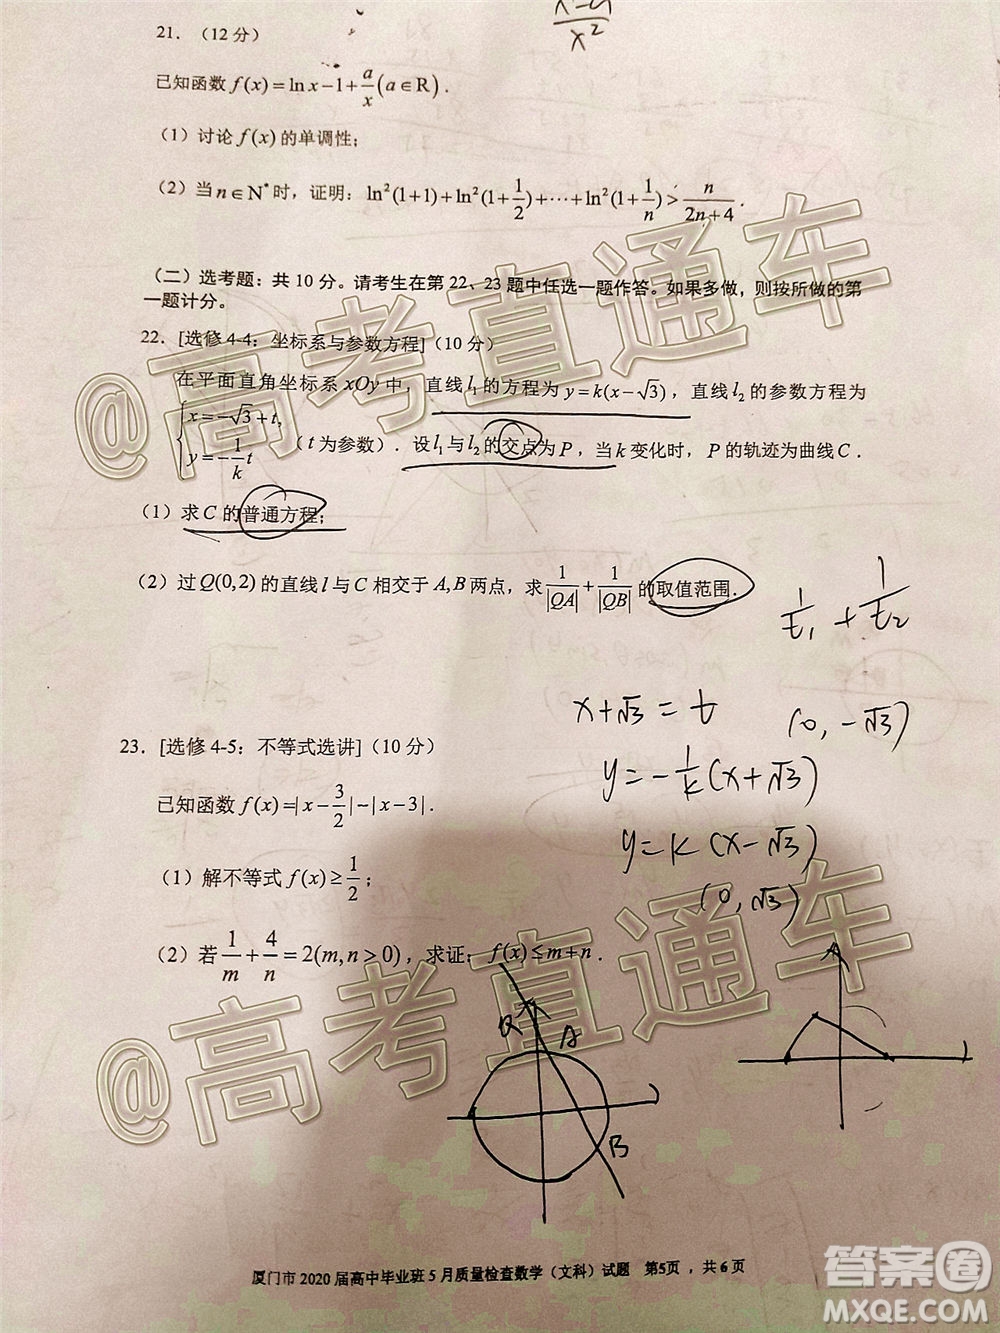 x-a
x²
21. (12 分)
已知函数 f(x)=ln x-1+a/x(a∈R).
(1) 讨论 f(x) 的单调性;
(2) 当 n∈N*时, 证明: ln²(1+1)+ln²(1+1/2)+⋯+ln²(1+1/n)>n/(2n+4).
(二) 选考题: 共 10 分. 请考生在第 22、23 题中任选一题作答. 如果多做, 则按所做的第
一题计分.
22. [选修 4-4: 坐标系与参数方程](10 分)
在平面直角坐标系 xOy 中, 直线 l₁ 的方程为 y=k(x-√3), 直线 l₂ 的参数方程为
{x=-√3+t, y=-1/k t (t 为参数). 设 l₁ 与 l₂ 的交点为 P, 当 k 变化时, P 的轨迹为曲线 C.
(1) 求 C 的普通方程;
(2) 过 Q(0,2) 的直线 l 与 C 相交于 A,B 两点, 求 1/|QA|+1/|QB| 的取值范围.
1/t₁ + 1/t₂
x+√3 = t
(0, -√3)
23. [选修 4-5: 不等式选讲](10 分)
y=-1/k(x+√3)
已知函数 f(x)=|x-3/2|-|x-3|.
y=k(x-√3)
(1) 解不等式 f(x)≥1/2;
(0, √3)
(2) 若 1/m+4/n=2(m,n>0), 求证: f(x)≤m+n.
Q
A
B
厦门市 2020 届高中毕业班 5 月质量检查数学 (文科) 试题 第5页, 共 6 页
@高考直通车
@高考直通车
答案圈
MXQE.COM